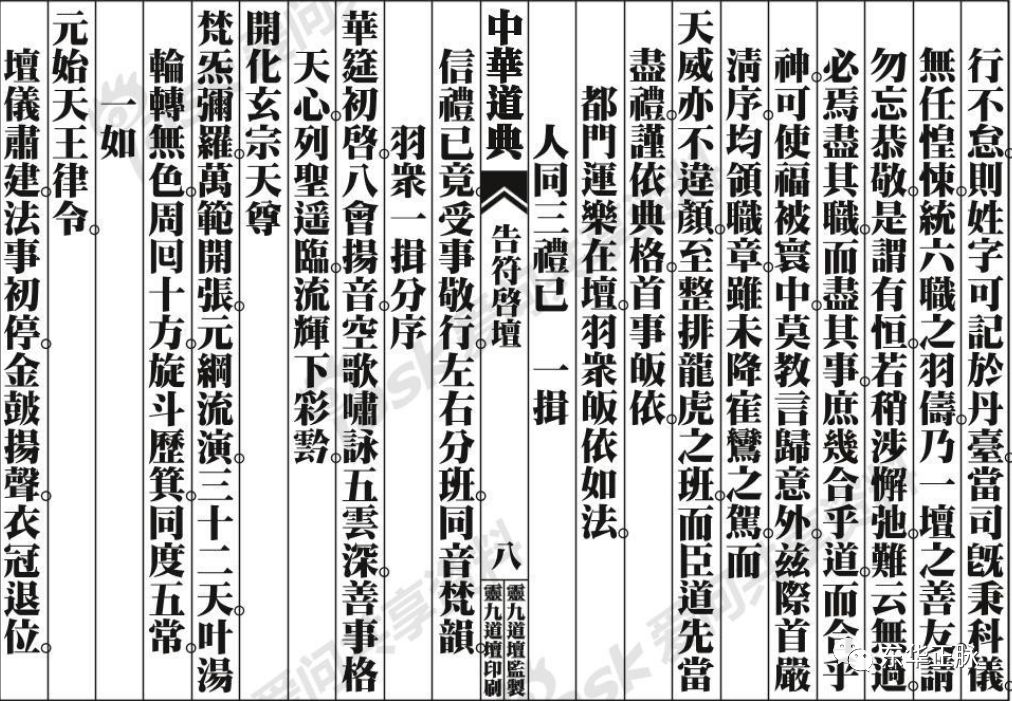 行不怠。則姓字可記於丹臺。當司旣秉科儀。
無任惶悚。統六職之羽儔。乃一壇之善友。請
勿忘恭敬。是謂有恒。若稍涉懈弛。難云無過。
必焉盡其職。而盡其事。庶幾合乎道。而合乎
神。可使福被寰中。莫教言歸意外。茲際首嚴
清序。均領職章。雖未降寉鸞之駕。而
天威亦不違顏。至整排龍虎之班。而臣道先當
盡禮。謹依典格。首事皈依。
都門運樂在壇。羽衆皈依如法。
人同三禮已 一揖
中華道典 告符啓壇 八
靈九道壇監製
靈九道壇印刷
信禮已竟。受事敬行。左右分班。同音梵韻。
羽衆一揖分序
華筵初啓。八會揚音。空歌嘯詠五雲深。善事格
天心。列聖遥臨。流輝下彩黔。
開化玄宗天尊
梵炁彌羅。萬範開張。元綱流演。三十二天。叶湯
輪轉無色。周回十方。旋斗歷箕。同度五常。
一如
元始天王律令。
壇儀肅建。法事初停。金鼓揚聲。衣冠退位。
东华正脉
爱问共享资料